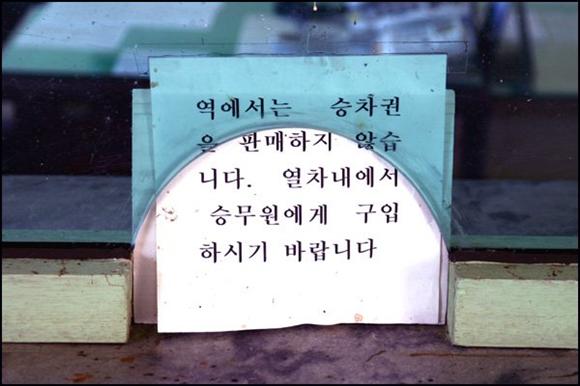 역에서는 승차권
을 판매하지 않습
니다. 열차내에서
승무원에게 구입
하시기 바랍니다